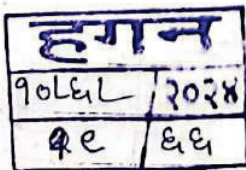 हगन
१०८६८ २०२४
६६